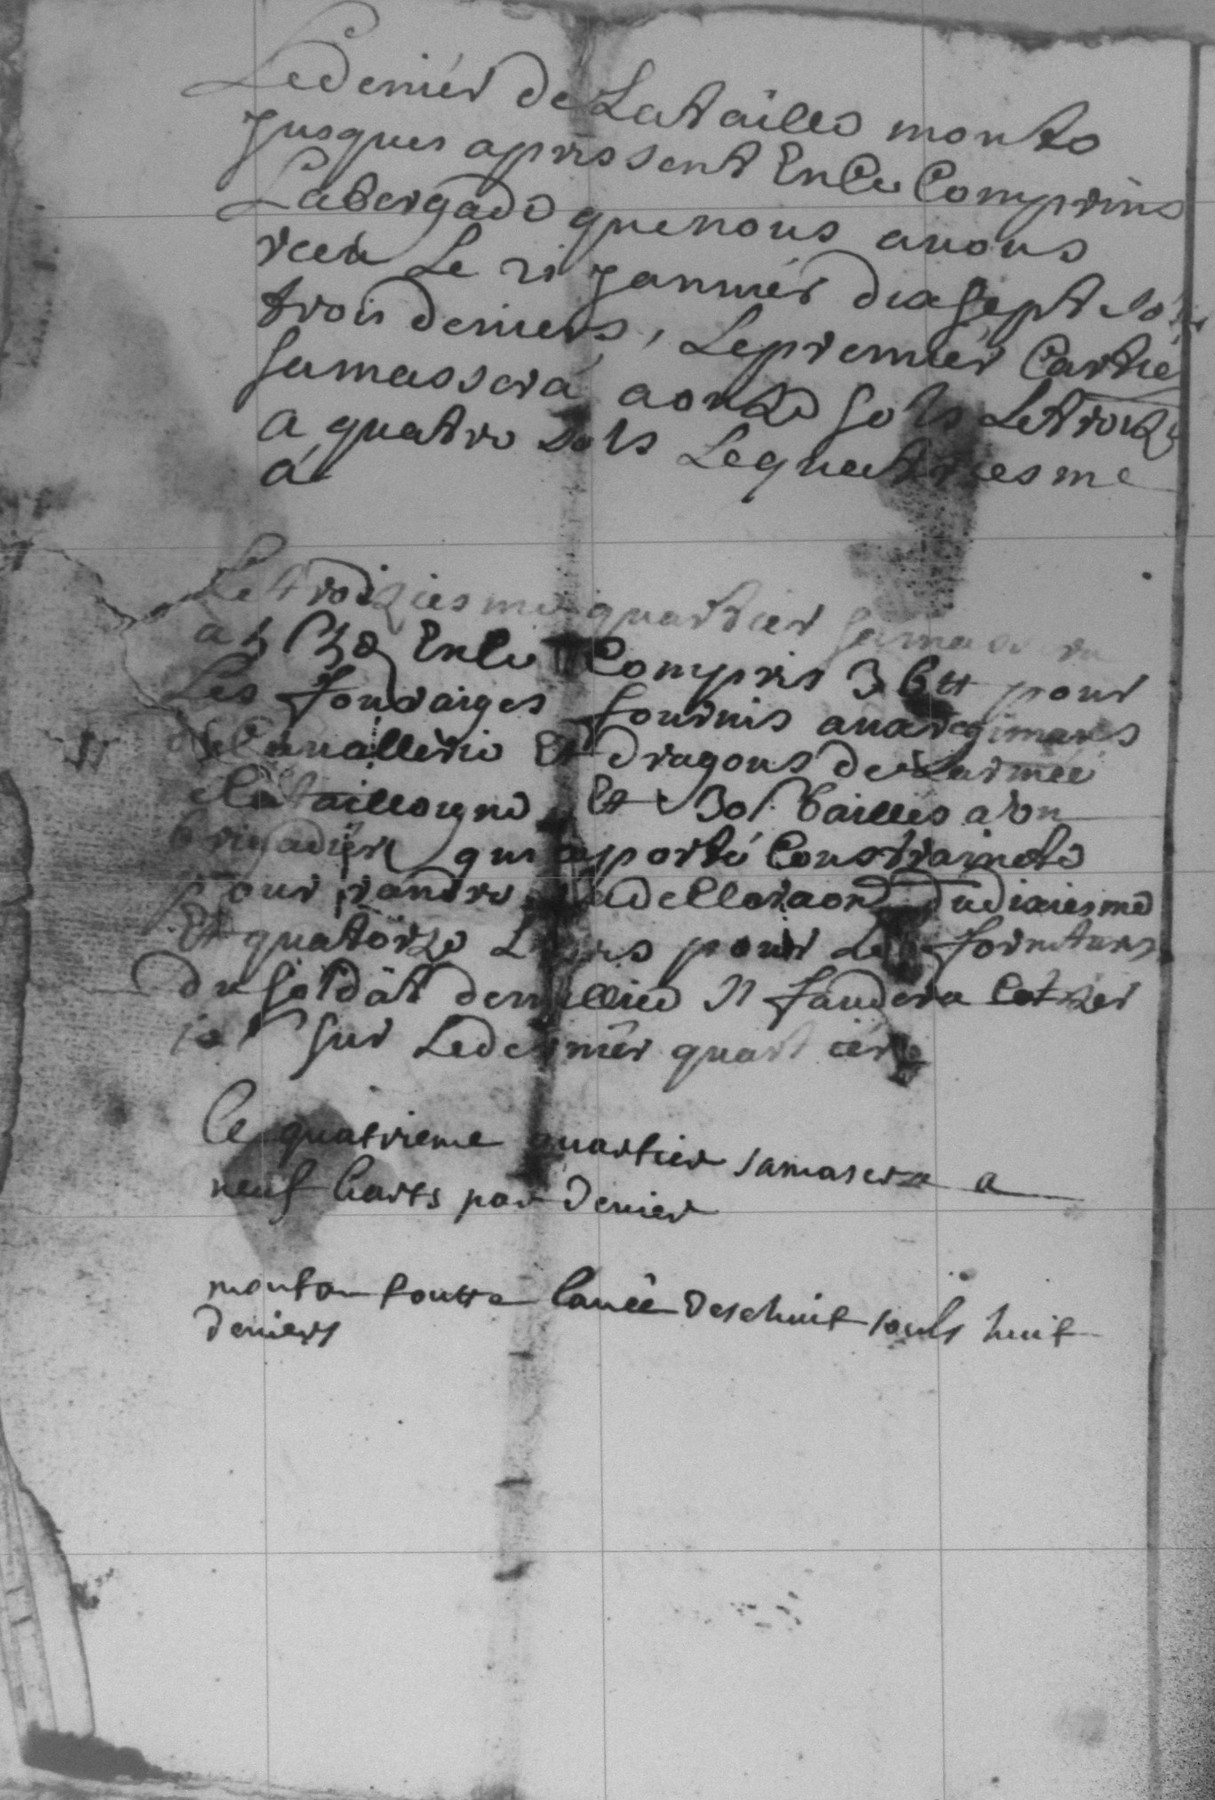 Le denier de La tailles monte
Jusques apressent En Ce Comprins
Labergade que nous auons
receu Le 21 Januier dix sept sols
trois deniers, Le premier Cartie
samassera a onze sols Le troize
a quatre sols Le quatriesme
a
Le troiziesme quartier samassera
a 5 s 3 d En Ce Compris 36 tt pour
Les fouraiges fournis aux regimans
de Cauallerie Et dragons de Larmee
Et 30 s bailles a un
brigadier qui a porté Constrainete
pour randre La decllaraon du dixiesme
Et quatorze Liures pour Les fornitures
du soldat de millice Il faudera Cotizer
sur Le dernier quartier
le quatrieme quartier samasera a
neuf liarts par denier
monte toutte lanée deschuit souls huit
deniers